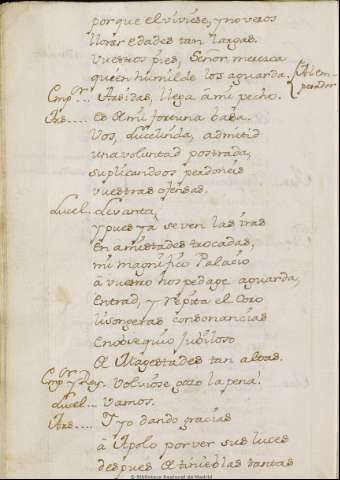 porque el viviese, y no veros
llorar edades tan largas.
Vuestros pies, Señor merezca
quien humilde los aguarda. (Al Em-
perador
Emp.r.... Arsidas, llega â mi pecho.
Ars..... Es â mi fortuna basa.
Vos, Lucelinda, admitid
una voluntad postrada,
suplicandoos perdoneis
vuestras ofensas.
Lucel. Levanta,
y pues yà se ven las iras
en amistades trocadas,
mi magnifico Palacio
â vuestro hospedage aguarda,
Entrad, y repita el Coro
lisongeras consonancias
En obsequio jubiloso
de Magestades tan altas.
Emp.r y Rey. Volviose gozo la pena.
Lucel... Vamos.
Ars.... Y yo dando gracias
â Apolo por ver sus luces
despues de tinieblas tantas
© Biblioteca Nacional de Madrid